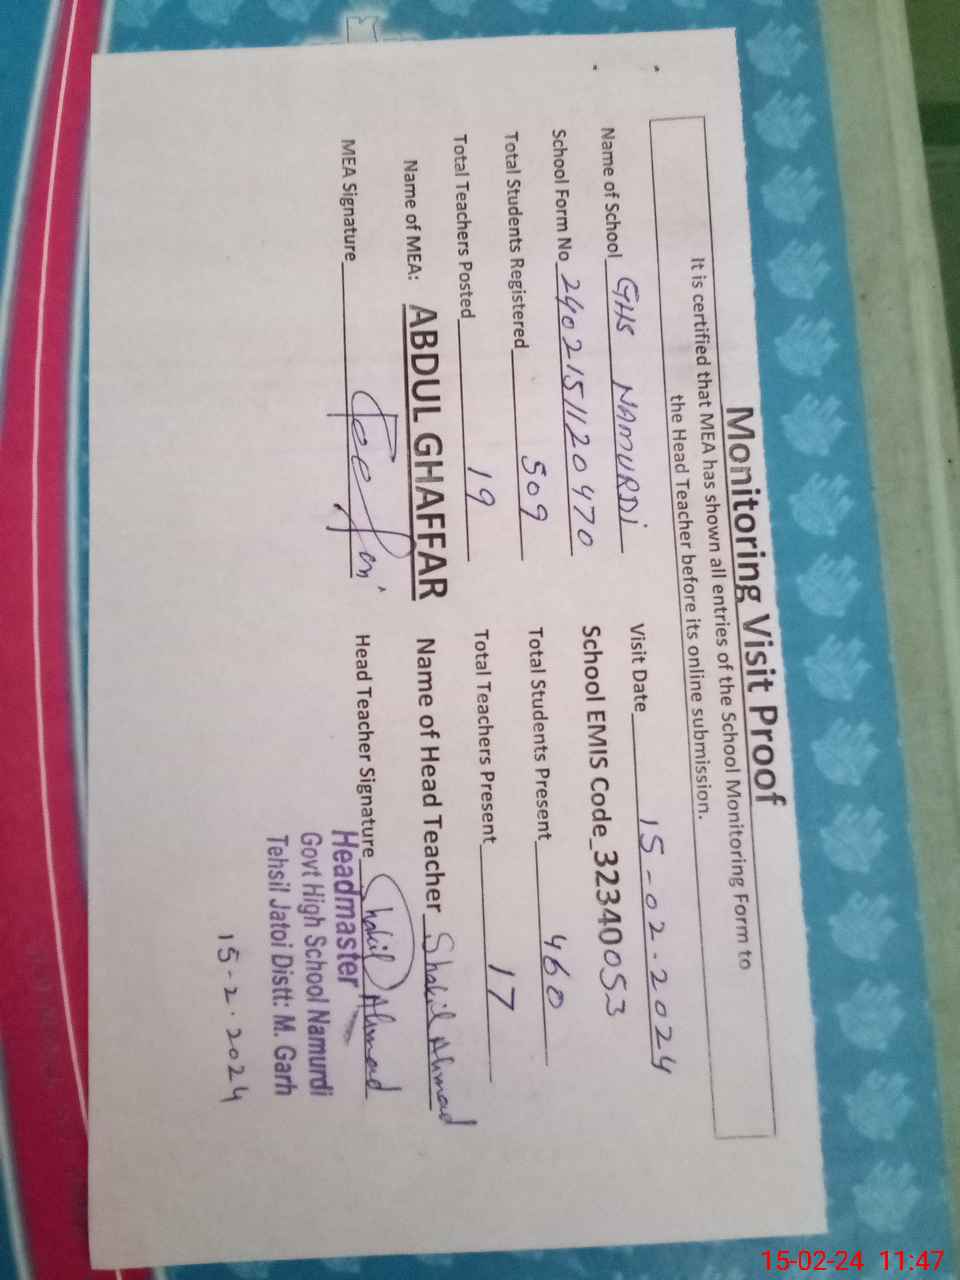 Monitoring Visit Proof
It is certified that MEA has shown all entries of the School Monitoring Form to
the Head Teacher before its online submission.
Name of School GHS NAMURDi Visit Date 15-02-2024
School Form No 2402151120470 School EMIS Code 32340053
Total Students Registered 509 Total Students Present 460
Total Teachers Posted 19 Total Teachers Present 17
Name of MEA: ABDUL GHAFFAR Name of Head Teacher Shakil Ahmad
MEA Signature Head Teacher Signature Shakil Ahmad
Headmaster
Govt High School Namurdi
Tehsil Jatoi Distt: M. Garh
15-2-2024
15-02-24 11:47